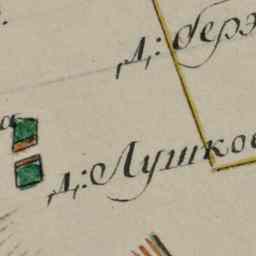 д: берз
а
д: Лушков